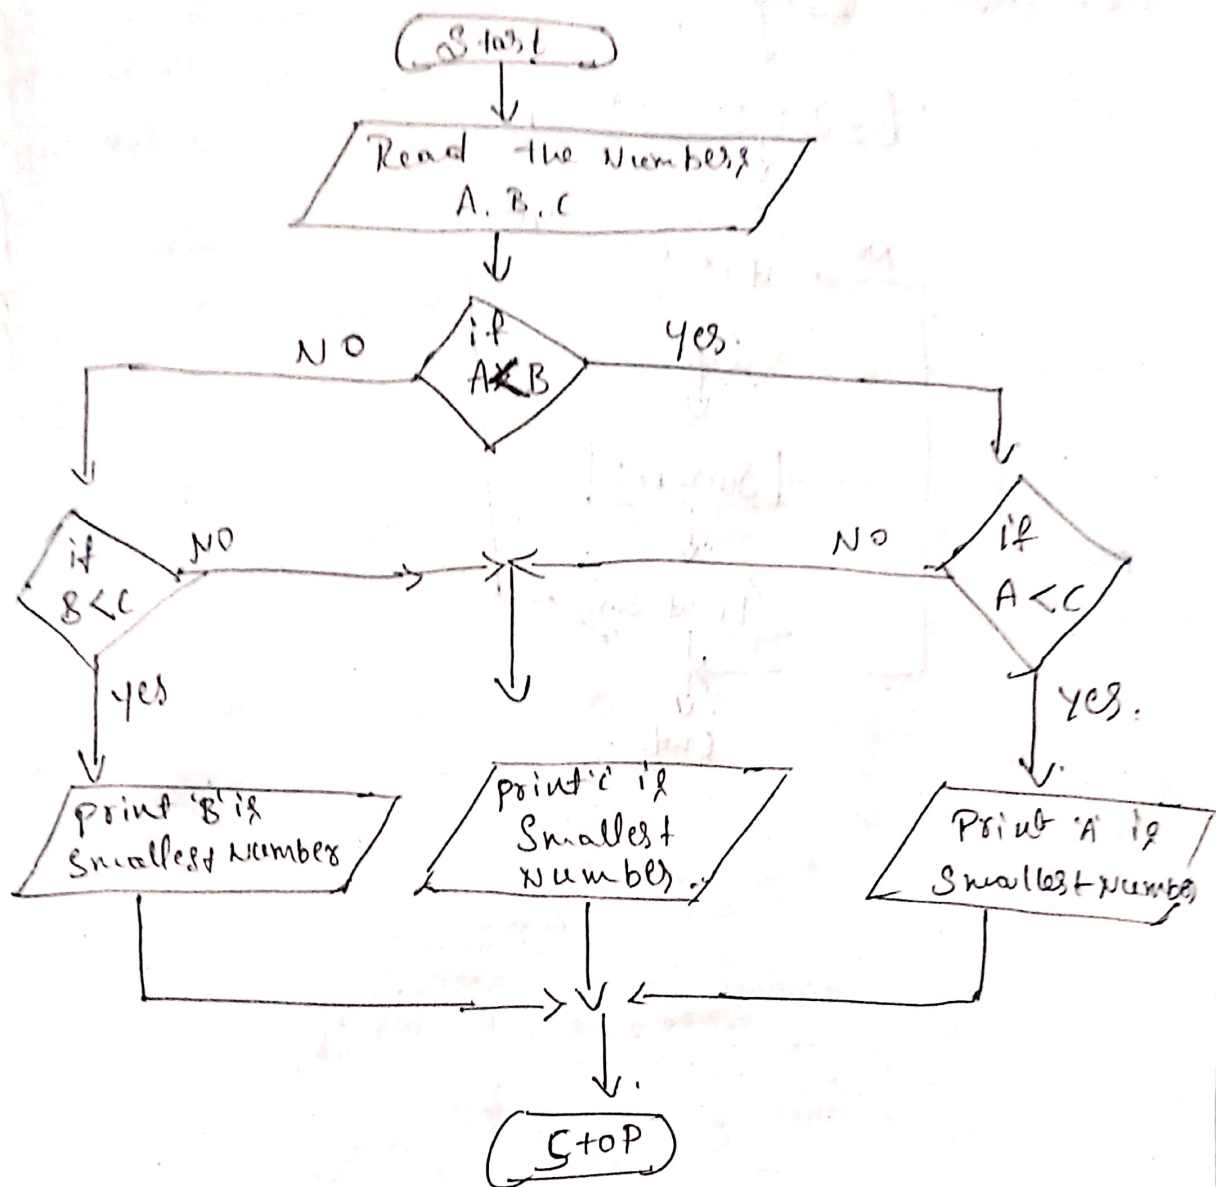 Start
Read the Numbers
A, B, C
if
A<B
NO
yes.
if
B<C
NO
yes
if
A<C
NO
yes.
print 'B' is
Smallest Number
print 'C' is
Smallest
Number.
Print 'A' is
Smallest Number
STOP